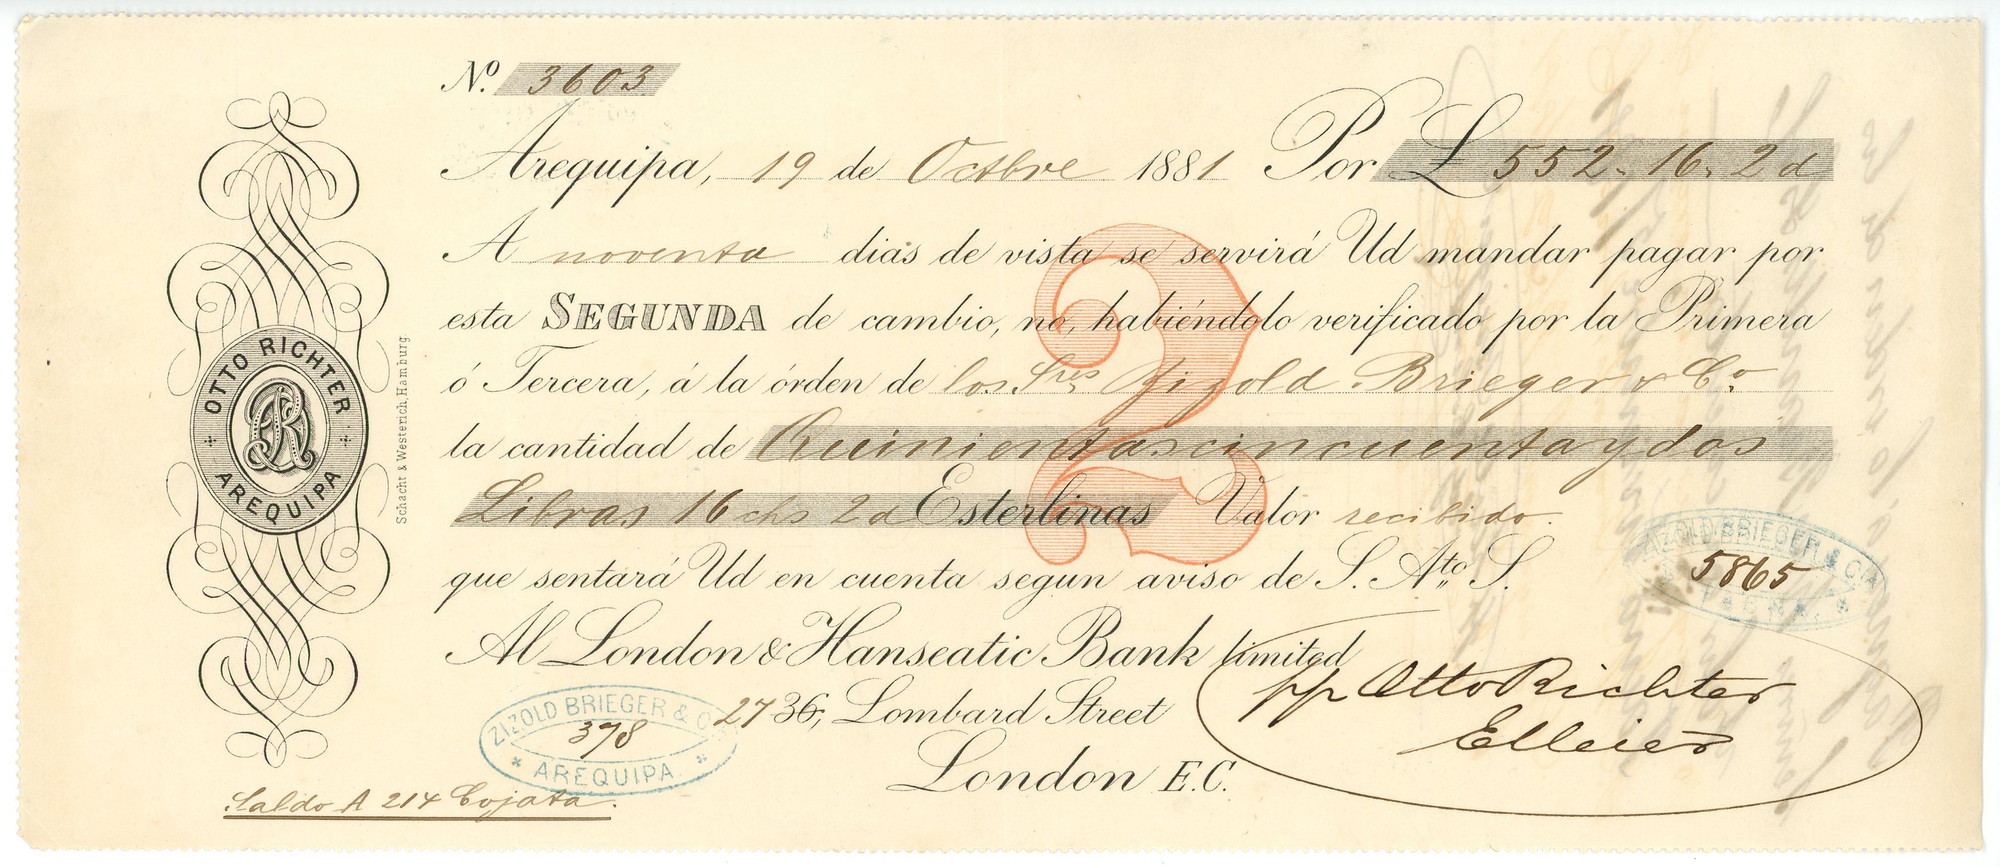 No. 3603
Arequipa, 19 de Octbre 1881 Por £ 552. 16. 2 d
A noventa dias de vista se servirá Ud mandar pagar por
esta SEGUNDA de cambio, no, habiéndolo verificado por la Primera
ó Tercera, á la órden de los Sres Zizold Brieger & Co
la cantidad de Quinientas cincuenta y dos
Libras 16 chs 2 d Esterlinas Valor recibido.
que sentará Ud en cuenta segun aviso de S. Atto. S.
Al London & Hanseatic Bank limited
27 36, Lombard Street
London E.C.
pp Otto Richter
OTTO RICHTER
AREQUIPA
Schacht & Westerich, Hamburg
ZIZOLD BRIEGER & CA
5865
TACNA.
ZIZOLD BRIEGER & C
378
AREQUIPA.
Saldo A 214 Cojata.